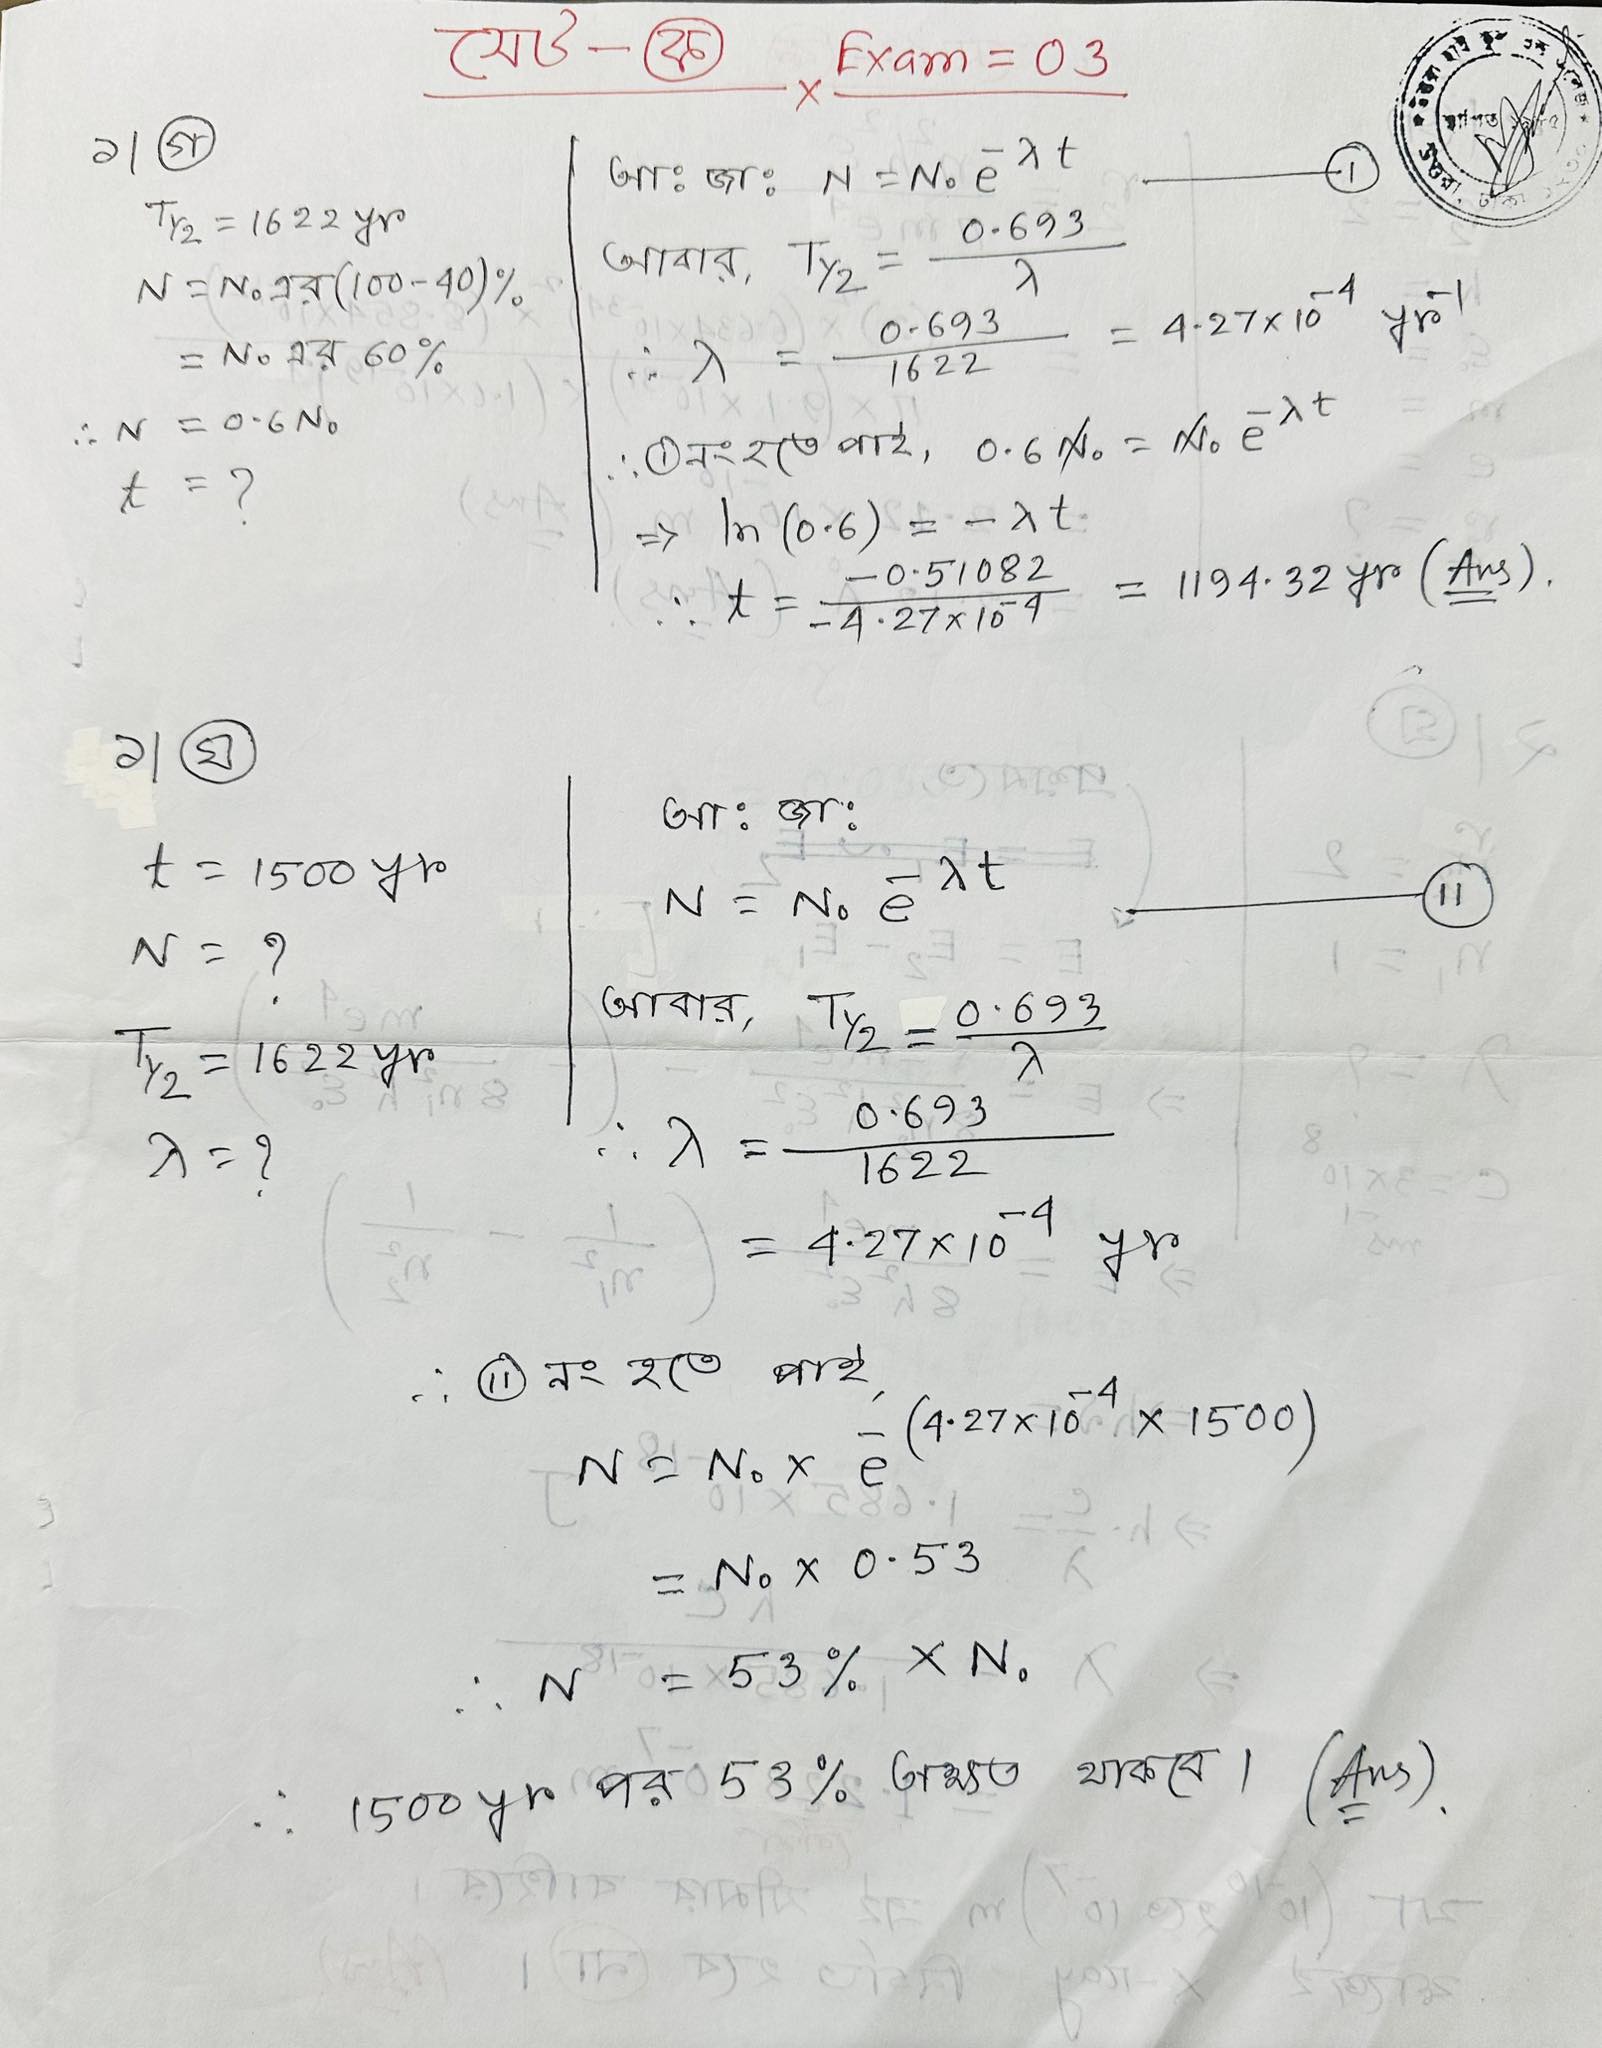 সেট - (ক) × Exam = 03
১| (গ)
T½ = 1622 yr
N = N₀ এর (100-40)%
= N₀ এর 60%
∴ N = 0.6 N₀
t = ?
আঃ জাঃ N = N₀ e^-λt (I)
আবার, T½ = 0.693/λ
∴ λ = 0.693/1622 = 4.27×10^-4 yr^-1
∴ (I) নং হতে পাই, 0.6 N₀ = N₀ e^-λt
⇒ ln (0.6) = -λt
∴ t = -0.51082/-4.27×10^-4 = 1194.32 yr (Ans).
১| (ঘ)
t = 1500 yr
N = ?
T½ = 1622 yr
λ = ?
আঃ জাঃ
N = N₀ e^-λt (II)
আবার, T½ = 0.693/λ
∴ λ = 0.693/1622
= 4.27×10^-4 yr
∴ (II) নং হতে পাই,
N = N₀ × e^-(4.27×10^-4 × 1500)
= N₀ × 0.53
∴ N = 53% × N₀
∴ 1500 yr পর 53% অক্ষত থাকবে। (Ans).